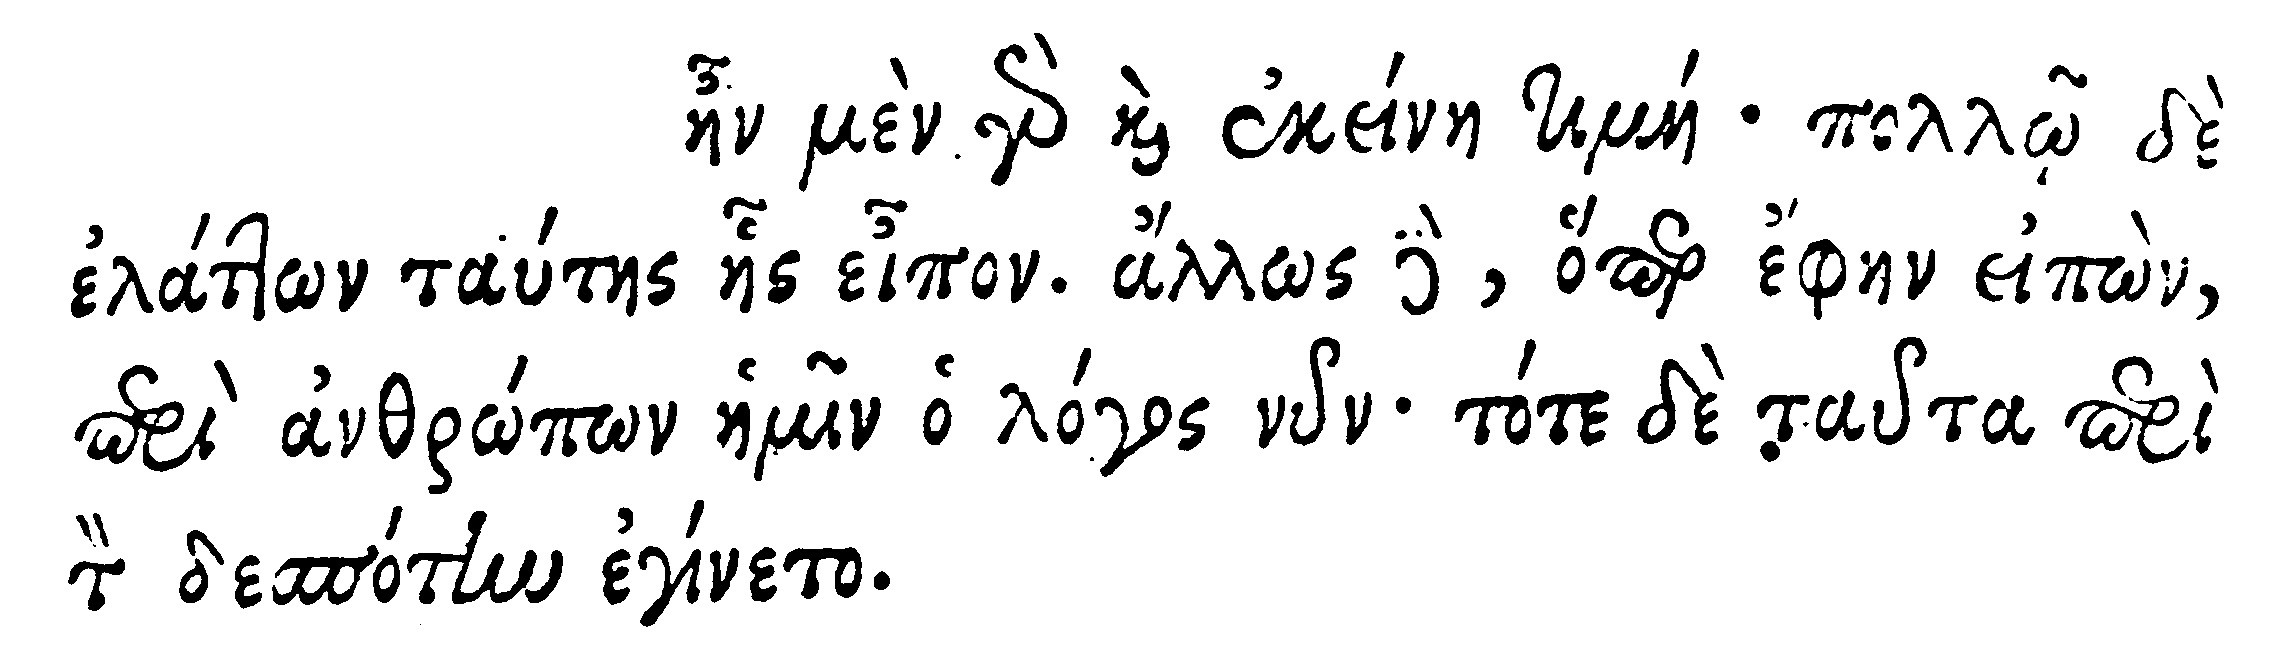 ἦν μὲν γὰρ καὶ ἐκείνη τιμή· πολλῷ δὲ
ἐλάττων ταύτης ἧς εἶπον. ἄλλως δὲ, ὅπερ ἔφην εἰπὼν,
περὶ ἀνθρώπων ἡμῖν ὁ λόγος νῦν· τότε δὲ ταῦτα περὶ
τὸν δεσπότην ἐγίνετο.